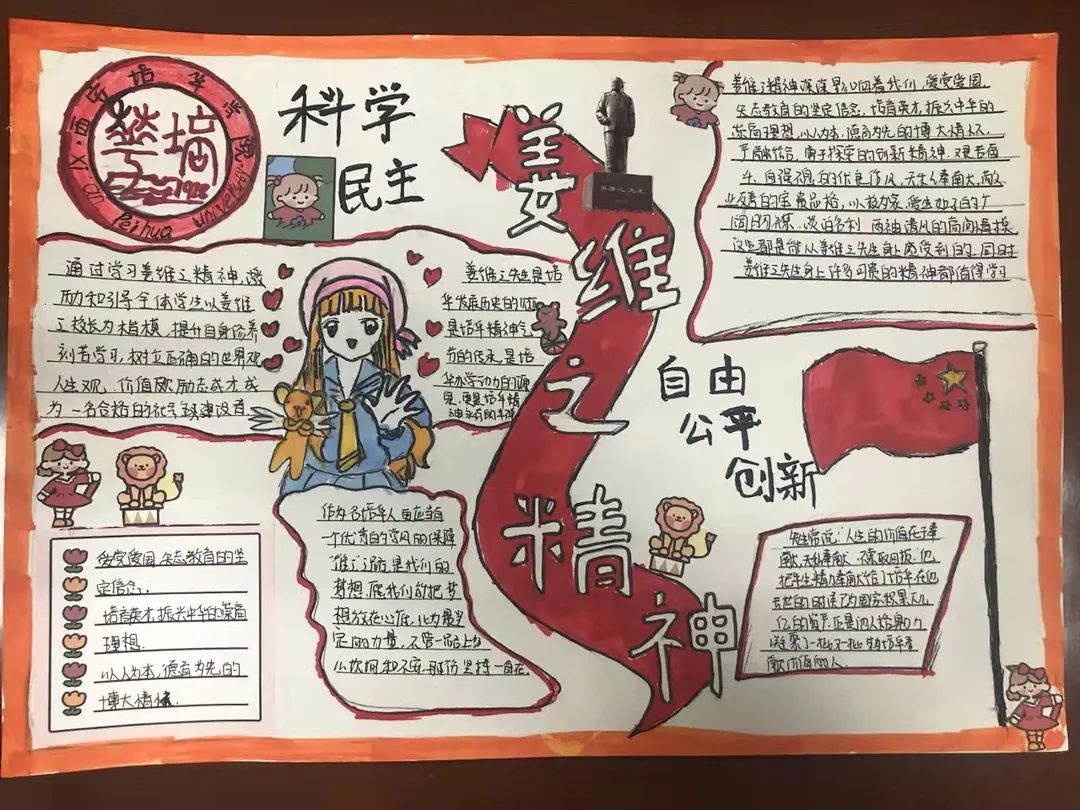 西安培华学院
Xi'an Peihua University
华培
1928
科学
民主
姜维之精神
姜维之先生
自由
公平
创新
通过学习姜维之精神,激
励和引导全体学生以姜维
之校长为楷模,提升自身修养
刻苦学习,树立正确的世界观
人生观、价值观,励志成才成
为一名合格的社会
建设者
姜维之先生是培
华发展历史的
是培华精神气
节的传承,是培
华办学动力的
泉,更是培华精
神
姜维之精神深深影响着我们,爱党爱国
矢志教育的坚定信念,培育英才,振兴中华的
崇高理想,以人为本,德育为先的博大情怀,
严
结合,勇于探索的创新精神,艰苦奋
斗,自强不息的优良作风,无生奉献,敬
业友善的宝贵品格,以校为家,爱生如子的广
阔胸襟,淡泊名利,两袖清风的高尚情操
这些都是能从姜维之先生身上感受到的,同时
姜维之先生身上许多可贵的精神都值得学习
爱党爱国,矢志教育的坚
定信念,
培育英才,振兴中华的崇高
理想.
以人为本,德育为先的
博大情怀.
作为名培华人,更应当自
一个优秀的学风的保障
我们的
梦想,愿我们能把梦
想放在心底,化为最坚
定的力量,不管一路上多
么坎坷和不安,那份坚持一直在
先生常说:“人生的价值在于奉
献,无私奉献,不求取回报."他
把毕生精力奉献给了培华,在他
去世的时候为国家积累几
亿的资产,正是
凝聚了一批又一批为培华奉
献价值的人.